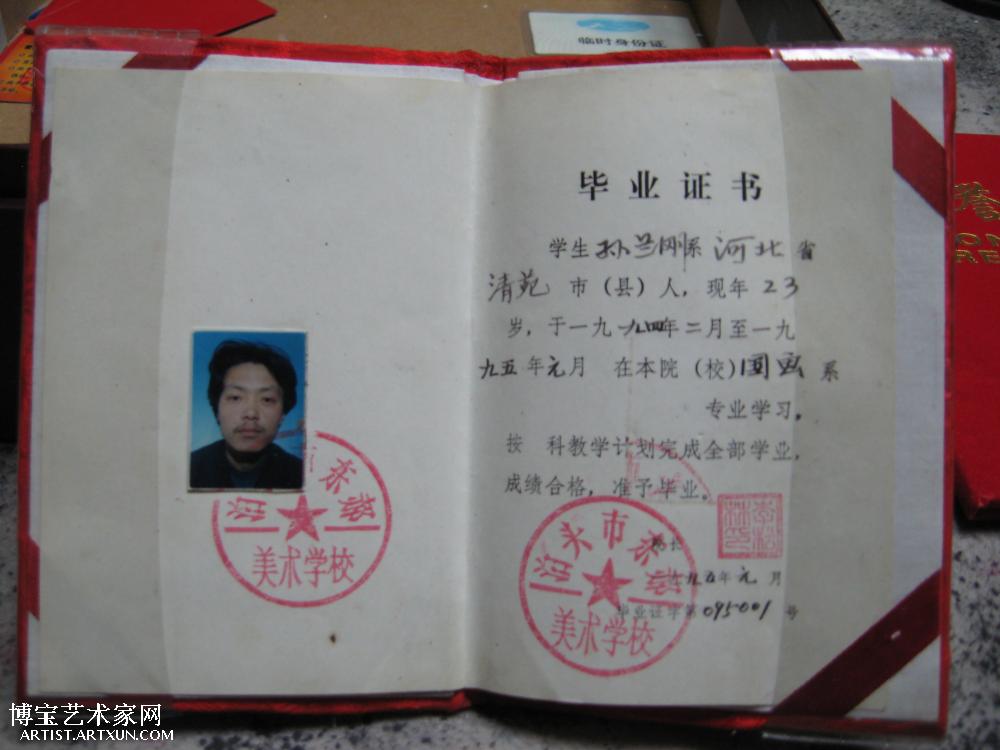 临时身份证
毕业证书
学生孙兰刚系河北省
清苑市(县)人,现年23
岁,于一九八四年二月至一九
九五年元月 在本院(校)国画系
专业学习。
按 科教学计划完成全部学业,
成绩合格,准予毕业。
校长
九五年元月
毕业证字第095001号
市东
美术学校
泊头市东
美术学校
博宝艺术家网
ARTIST.ARTXUN.COM